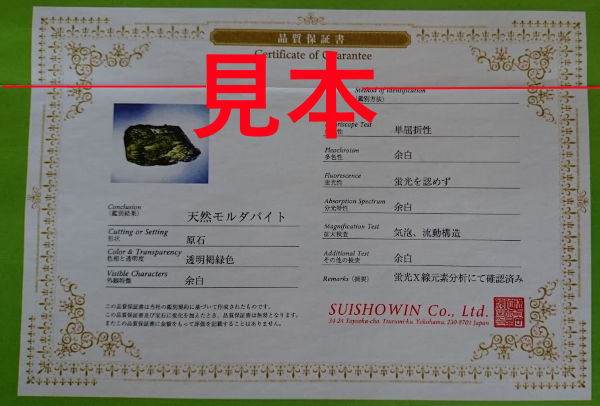 品質保証書
Certificate of Guarantee
見本
Method of Identification
(鑑別方法)
Test 単屈折性
Pleochroism
多色性 余白
Fluorescence
蛍光性 蛍光を認めず
Absorption Spectrum
分光特性 余白
Magnification Test
拡大検査 気泡、流動構造
Additional Test
その他の検査 余白
Remarks (摘要) 蛍光X線元素分析にて確認済み
Conclusion
(鑑別結果) 天然モルダバイト
Cutting or Setting
形状 原石
Color & Transparency
色相と透明度 透明褐緑色
Visible Characters
外観特徴 余白
この品質保証書は当社の鑑別規約に基づいて作成されたものです。
この品質保証書及び宝石に変化を加えたとき、品質保証書は無効となります。
またこの品質保証書に金額をもって評価を記載することはありません。
SUISHOWIN Co., Ltd.
Tsurumi-ku, Yokohama, 230-0701 Japan